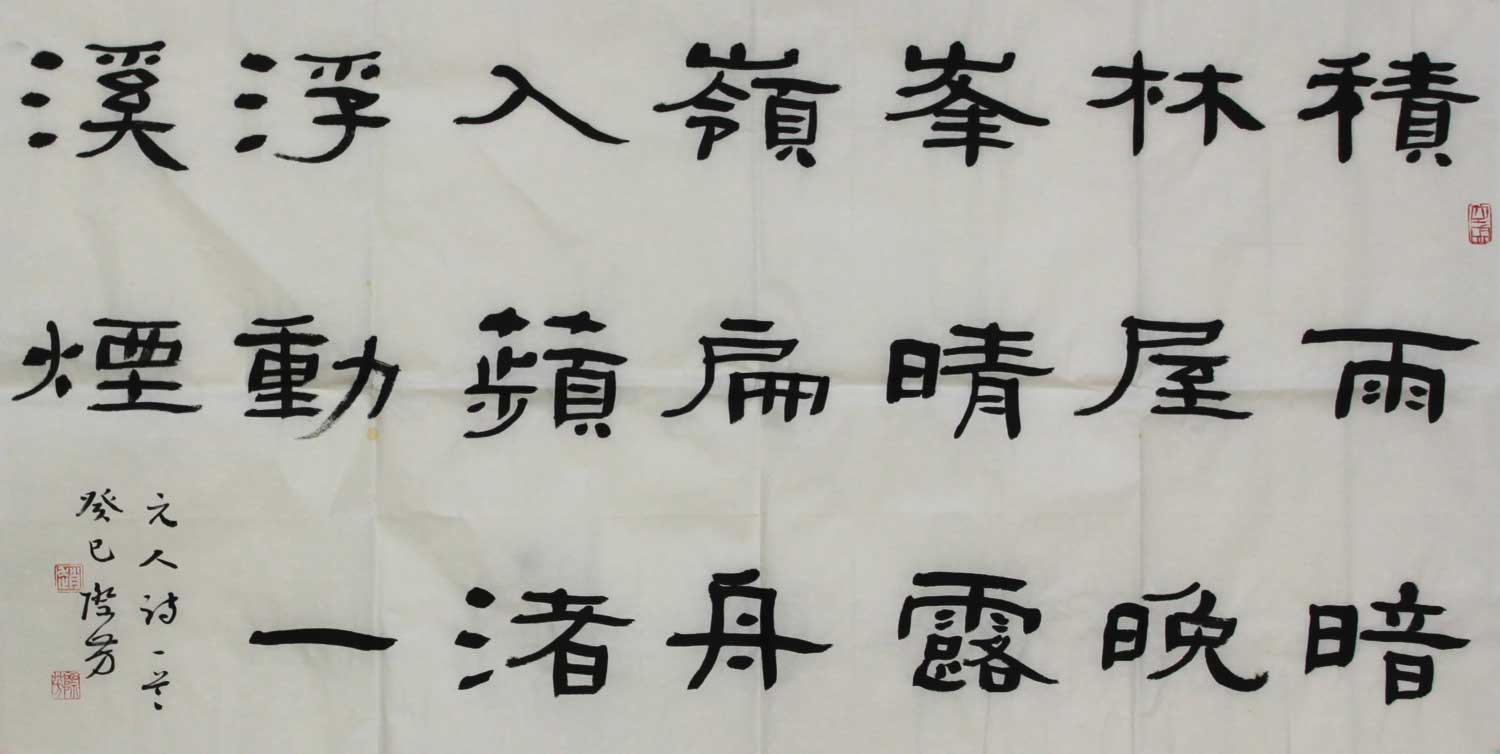 積雨暗
林屋晚
峯晴露
嶺扁舟
入蘋渚
浮動一
溪煙
元人詩一首
癸巳